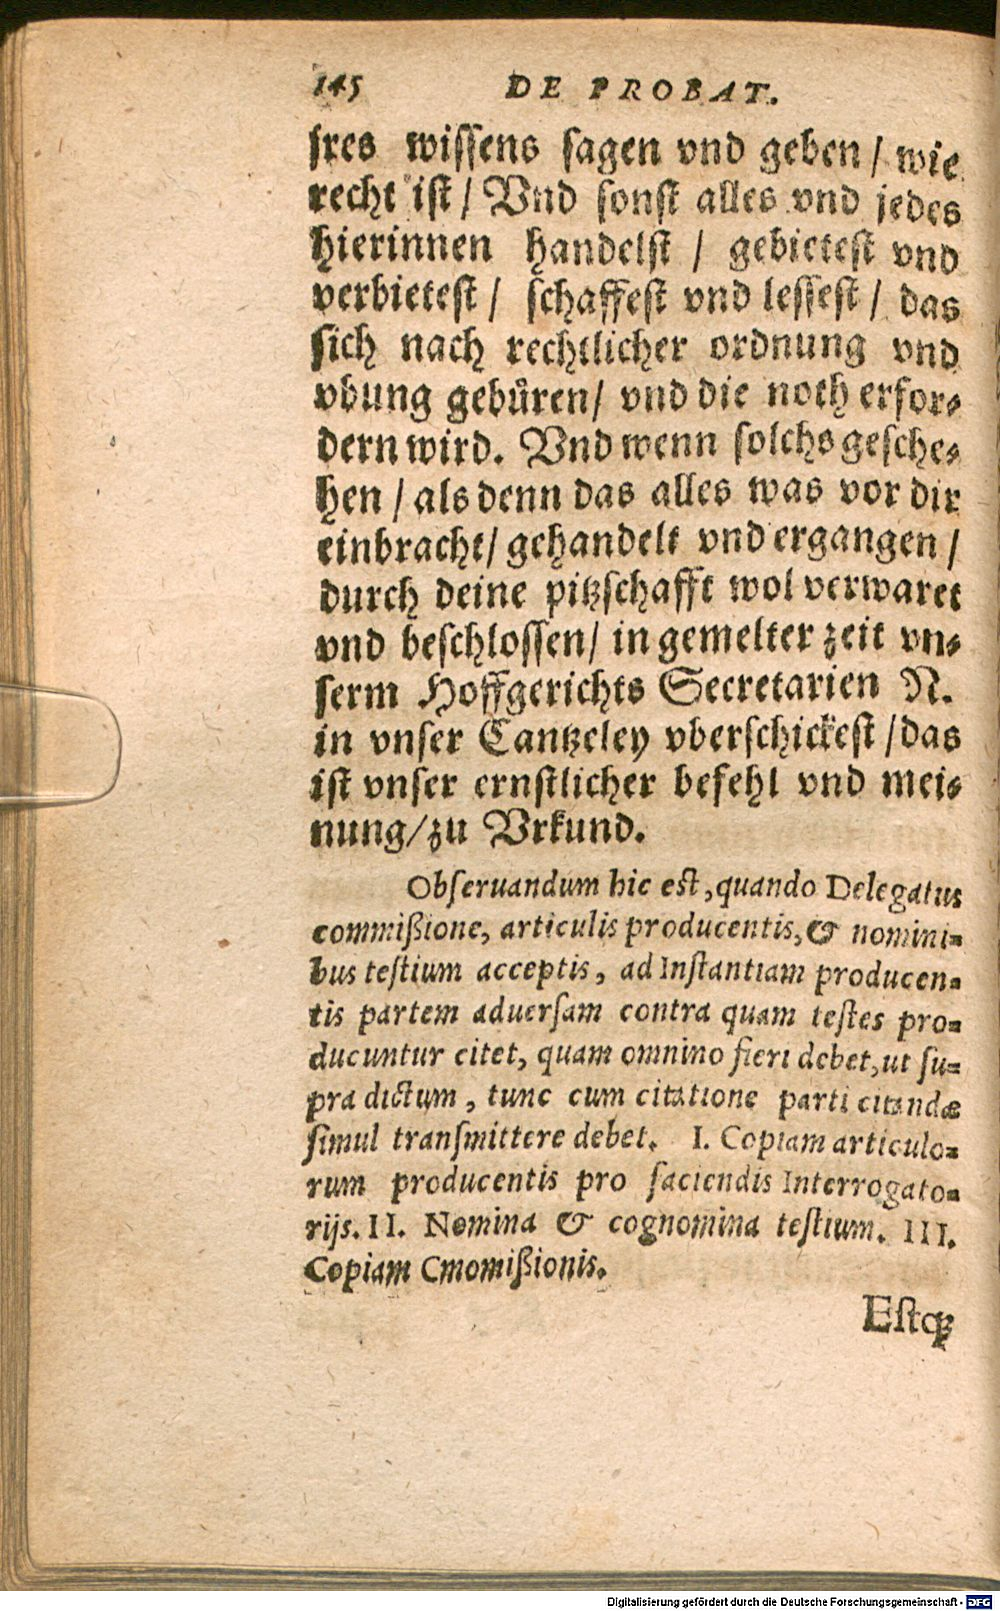 145 DE PROBAT.
jres wissens sagen vnd geben / wie
recht ist / Vnd sonst alles vnd jedes
hierinnen handelst / gebietest vnd
verbietest / schaffest vnd lessest / das
sich nach rechtlicher ordnung vnd
vbung gebůren / vnd die noth erfor⸗
dern wird. Vnd wenn solchs gesche⸗
hen / als denn das alles was vor dir
einbracht / gehandelt vnd ergangen /
durch deine pitzschafft wol verwaret
vnd beschlossen / in gemelter zeit vn⸗
serm Hoffgerichts Secretarien N.
in vnser Cantzeley vberschickest / das
ist vnser ernstlicher befehl vnd mei⸗
nung / zu Vrkund.
Obseruandum hic est, quando Delegatus
commißione, articulis producentis, & nomini⸗
bus testium acceptis, ad Instantiam producen⸗
tis partem aduersam contra quam testes pro⸗
ducuntur citet, quam omnino fieri debet, ut su⸗
pra dictum, tunc cum citatione parti citandæ
simul transmittere debet. I. Copiam articulo⸗
rum producentis pro faciendis Interrogato⸗
rijs. II. Nomina & cognomina testium. III.
Copiam Cmomißionis.
Estq́;
Digitalisierung gefördert durch die Deutsche Forschungsgemeinschaft - DFG